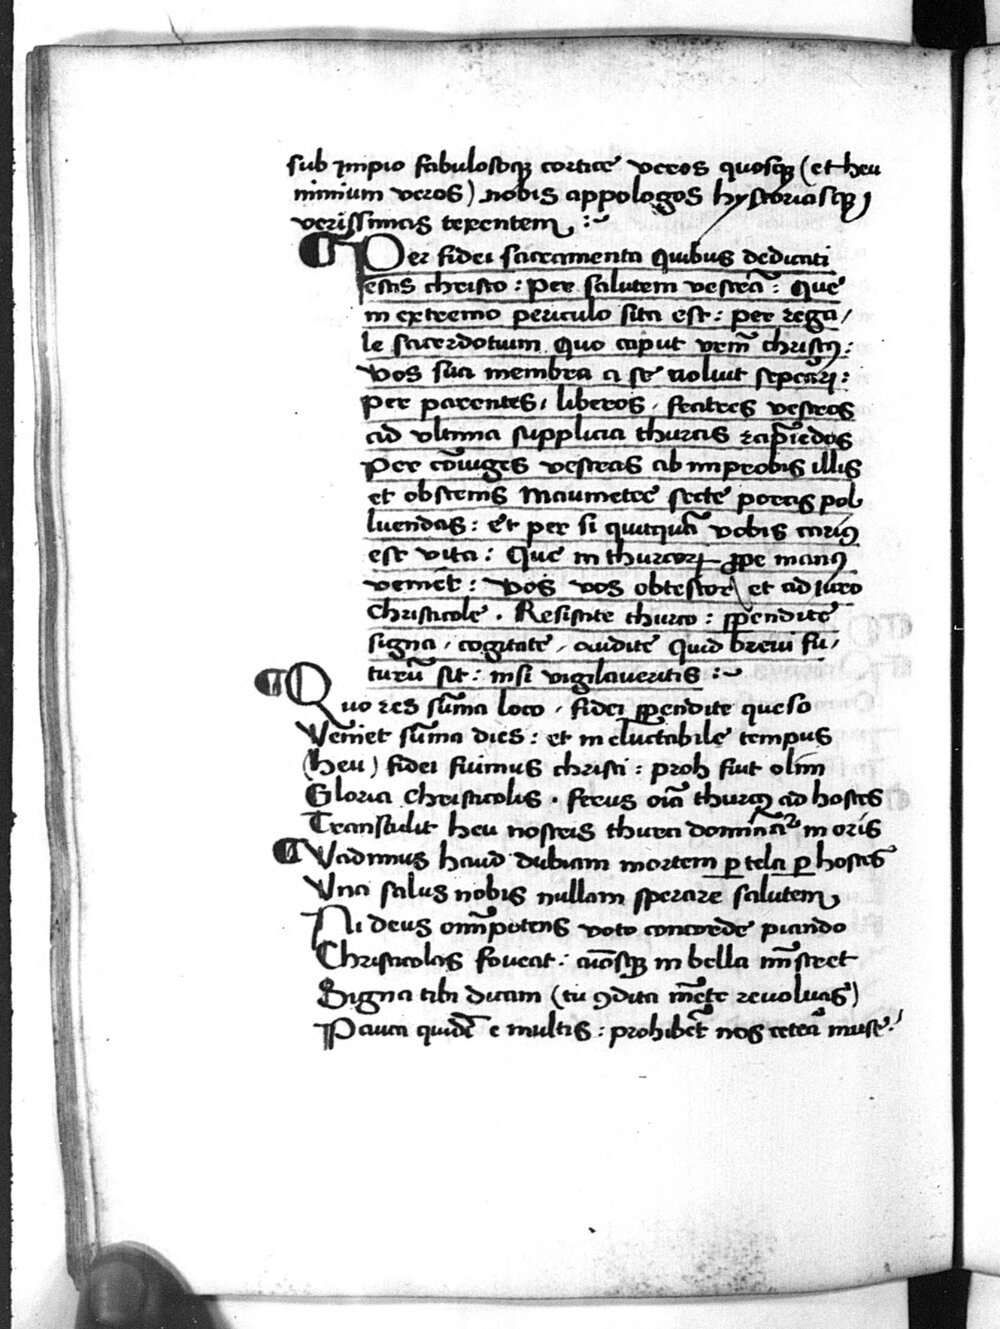 sub impio fabulosoq̃ cortice veros quosq̃ (et heu
nimium veros) nobis appologos hystoriasq̃
verissimas texentem :~
¶ Per fidei sacramenta quibus dedicati
estis christo : per salutem vestrã : Que
in extremo periculo sita est : per rega/
le sacerdotium Quo caput verũ christꝰ :
vos sua membra a se noluit sepãri :
Per parentes, liberos, fratres vestros
ad vltima supplicia thuras rapiẽdos
Per cõiuges vestras ab improbis illis
et obscenis Maumetee secte porcis pol
luendas : et per si quitquã vobis cariꝰ
est vita : Que in thurcoꝝ ꝓpe manꝰ
venict : vos vos obtestor et adiuro
christicole . Resistite thurco : ꝑpendite
signa, cogitate, audite Quid brevi fu/
turũ sit : nisi vigilaveritis :~
¶ Quo res sũma loco, fidei ꝑpendite queso
Venit sũma dies : et ineluctabile tempus
(heu) fidei fuimus christi : proh fuit olim
Gloria christicolis . ferus oĩa thurcꝰ ad hostes
Transtulit heu nostris thurca dominať in oris
¶ Vadimus haud dubiam mortem ꝑ tela ꝑ hostes
Vna salus nobis nullam sperare salutem
Ni deus omĩpotens voto concorde piando
Christicolas foveat : aĩosq̃ in bella mĩstret
Signa tibi dicam (tu ꝯdita mẽte revoluas)
Pauca quidẽ e multis : prohibẽt nos ceterã muse.